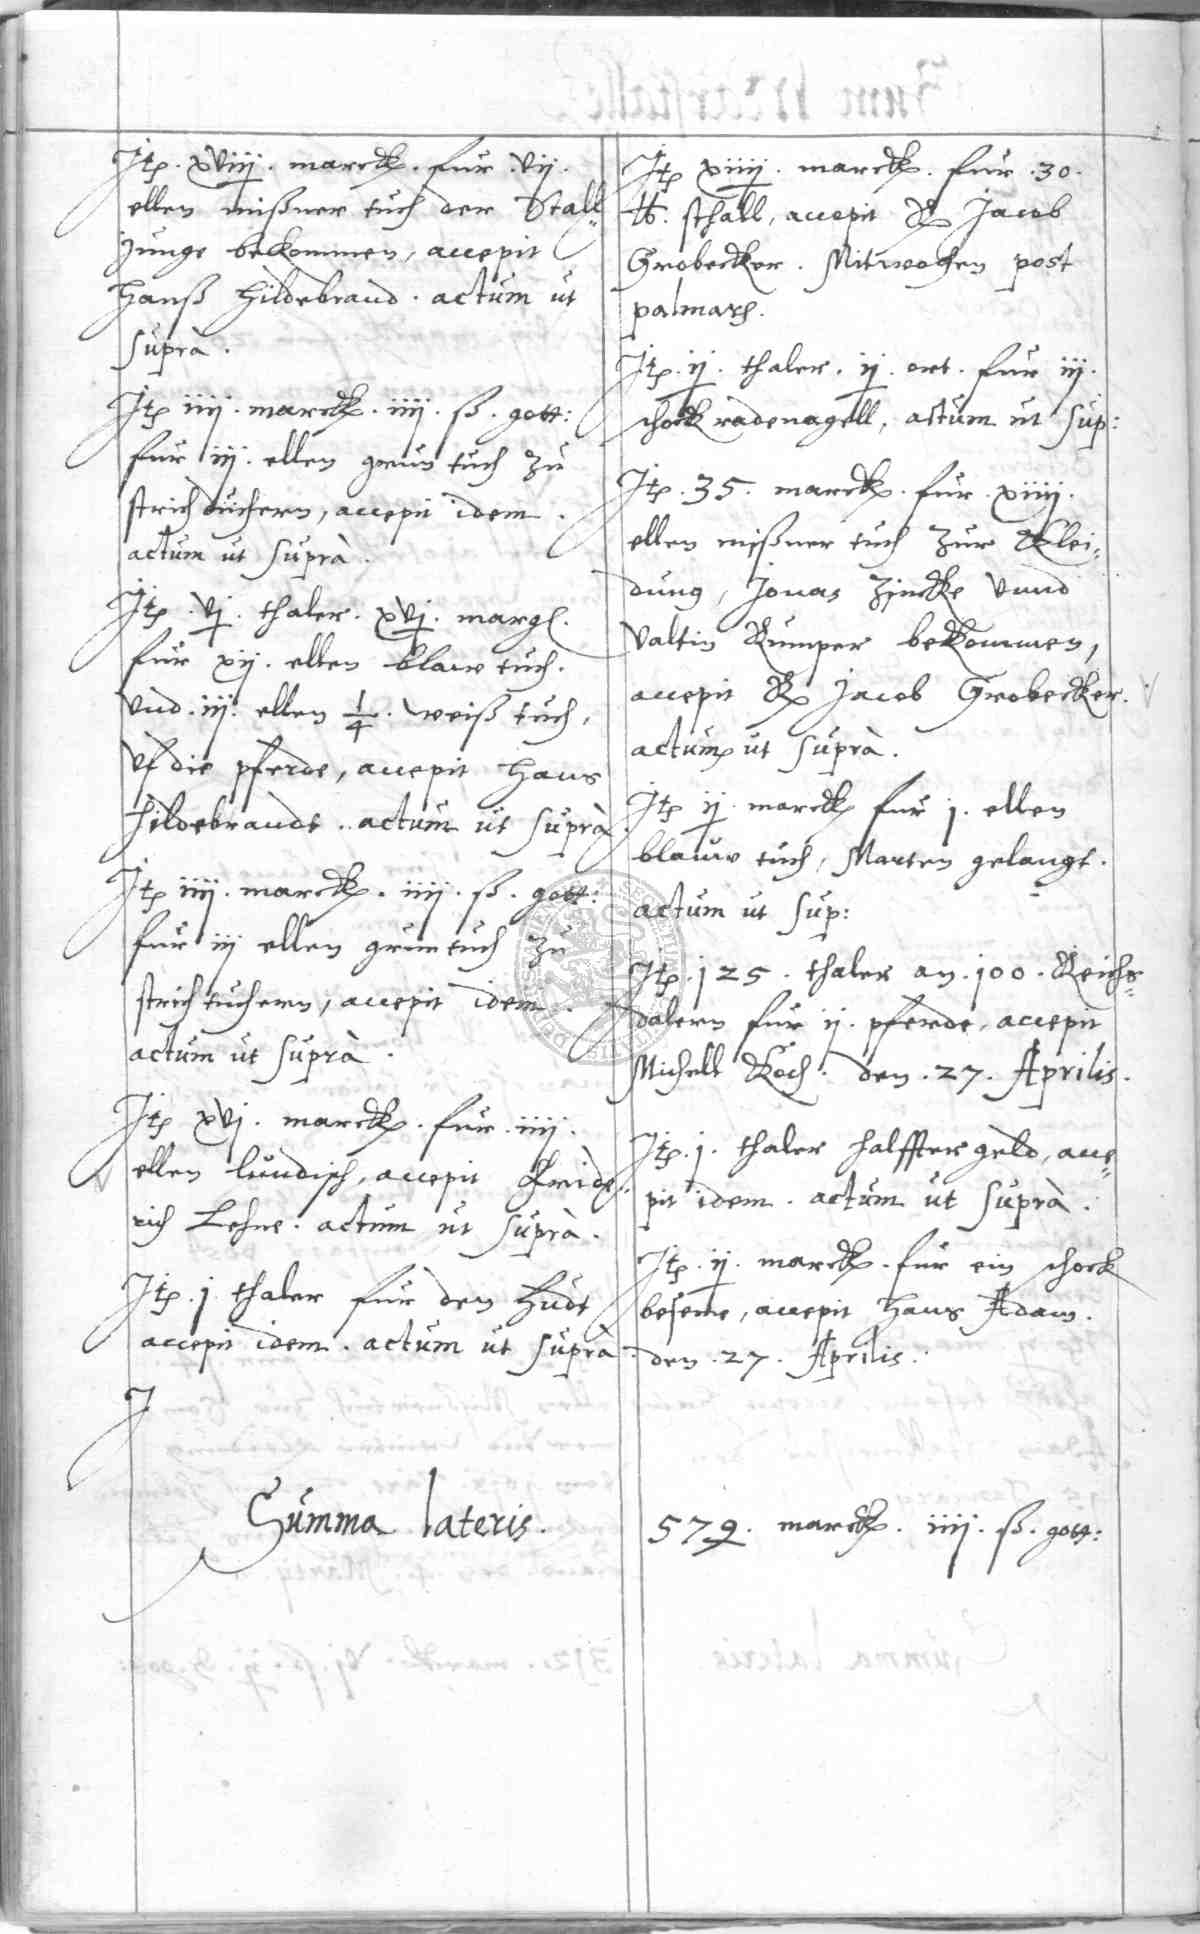 Itp. xviiij. marckh. fur. vij.
ellen mißner tuch der Stall
Junge bekommen, accepit
Hanß Hildebrand. actum ut
suprà.
Itp iiij. marckh. iiij. ß. gott:
fur iij. ellen grun tuch zu
strichduchern, accepit idem.
actum ut suprà.
Itp. vj. thaler. xvj. margl.
fur xij. ellen blaw tuch.
vnd. iij. ellen 1/4. weiß tuch,
vf die pferde, accepit Hans
Hildebrandt. actum ut suprà.
Itp iiij. marckh. iiij. ß. gott:
fur iij ellen grun tuch zu
strichtuchern, accepit idem.
actum ut suprà.
Itp xvj. marckh. fur. iiij.
ellen lundisch, accepit Fride,,
rich Lehne. actum ut suprà.
Itp. j. thaler fur den Hudt
accepit idem. actum ut suprà.
Summa lateris.
Itp xiiij. marckh. fur. 30.
℔. schall, accepit Jacob
Grobecker. Mitwochen post
palmarh.
Itp. ij. thaler. ij. ort. fur iij.
schock radenagell, actum ut sup:
Itp. 35. marckh. fur. xiiij.
ellen mißner tuch zur Klei,,
dung, Jonas Zincke vnnd
Valtin Rumper bekommen,
accepit Jacob Grobecker.
actum ut suprà.
Itp ij. marckh fur j. ellen
blauw tuch, Marten gelangt.
actum ut sup:
Itp. 125. thaler an. 100. Reichs,,
dalern fur ij. pferde, accepit
Michell Koch. den. 27. Aprilis.
Itp. j. thaler halffter geld, acce,,
pit idem. actum ut suprà.
Itp. ij. marckh. fur ein schock
beseme, accepit Hans Adam.
den. 27. Aprilis.
579. marckh. iiij. ß. gott: